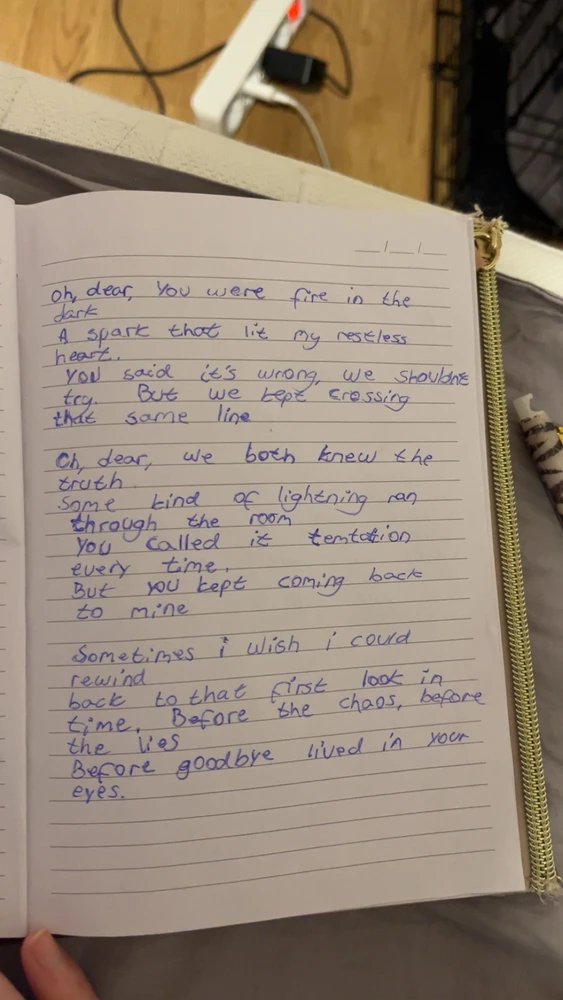 __/__/__
Oh, dear, you were fire in the
dark
A spark that lit my restless
heart.
you said it's wrong, we shouldnt
try. But we kept crossing
that same line
Oh, dear, we both knew the
truth
Some kind of lightning ran
through the room
You called it temtation
every time.
But you kept coming back
to mine
Sometimes i wish i could
rewind
back to that first look in
time. Before the chaos, before
the lies
Before goodbye lived in your
eyes.